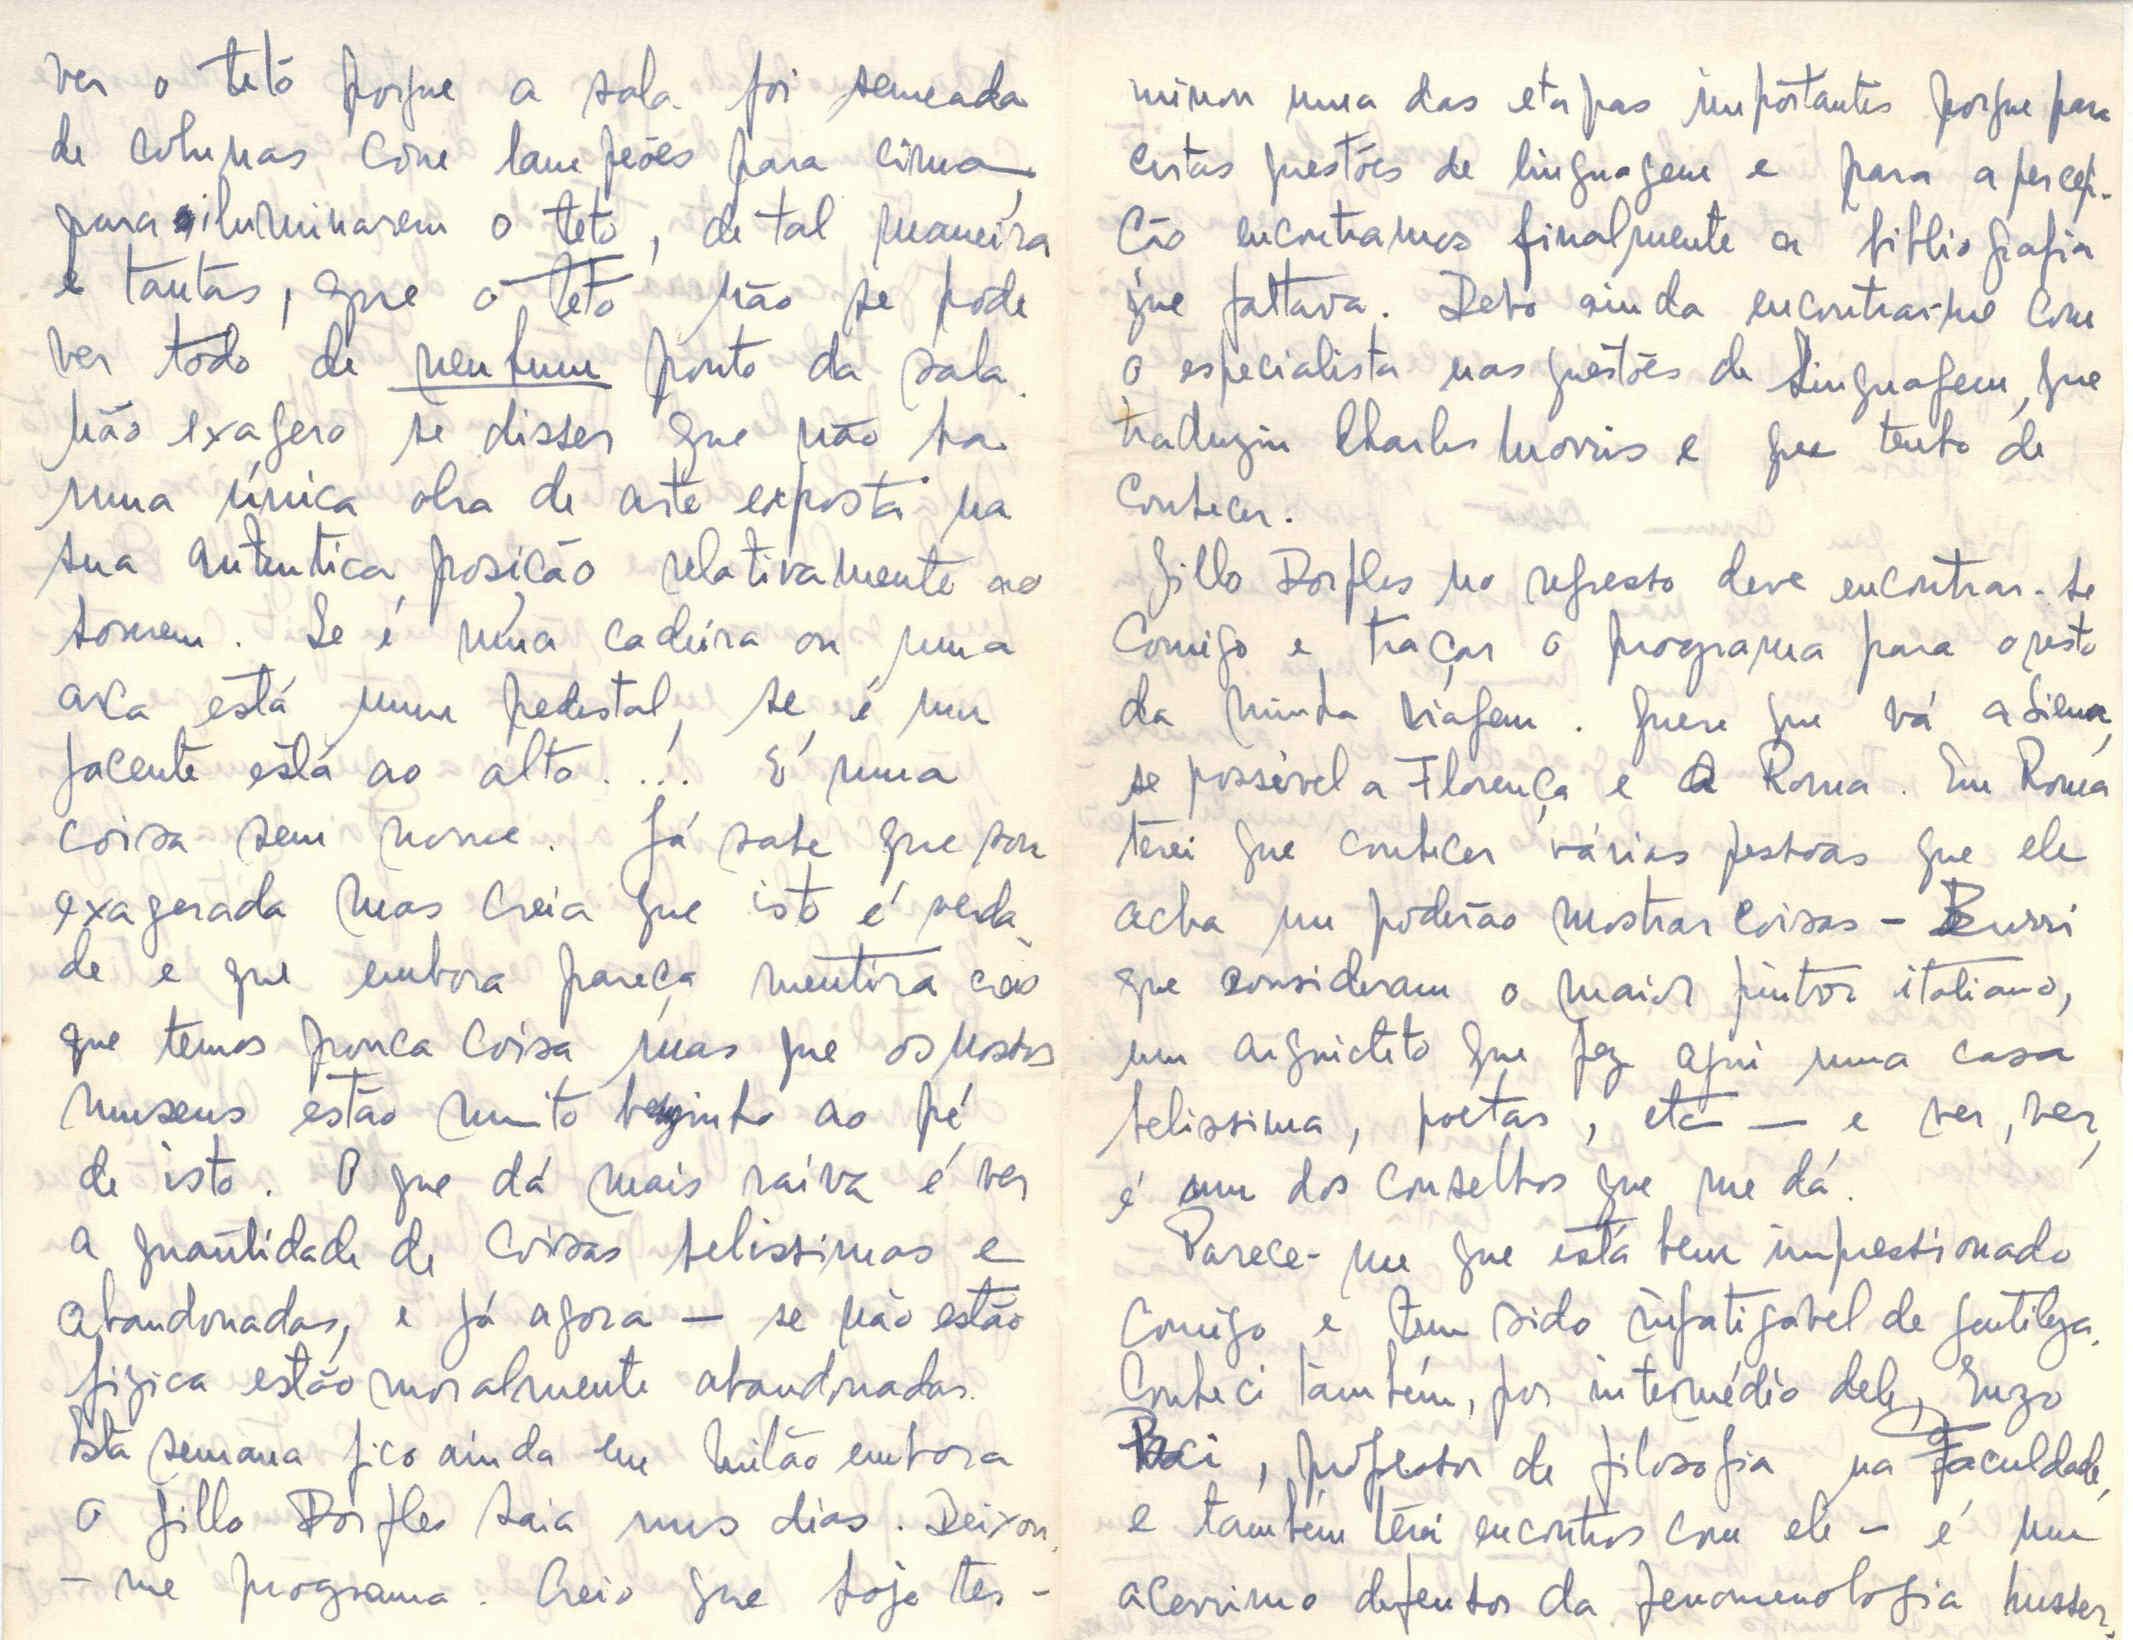 ver o teto porque a sala foi semeada
de colunas com lampeões para cima,
para iluminarem o teto, de tal maneira
e tantas, que o teto não se pode
ver todo de nenhum ponto da sala.
Não exagero se disser que não ha
uma única obra de arte exposta na
sua autentica posição relativamente ao
homem. Se é uma cadeira ou uma
arca está num pedestal, se é um
jacente está ao alto... É uma
coisa sem nome. Já sabe que sou
exagerada mas creia que isto é verda-
de e que embora pareça mentira creio
que temos pouca coisa mas que os nossos
museus estão muito bemzinho ao pé
de isto. O que dá mais raiva é ver
a quantidade de coisas belissimas e
abandonadas, e já agora — se não estão
fizica estão moralmente abandonadas.
Esta semana fico ainda em Milão embora
o Gillo Dorfles saia uns dias. Deixou-
-me programa. Creio que hoje ter-
minou uma das etapas importantes porque para
certas questões de linguagem e para a percep-
ção encontramos finalmente a bibliografia
que faltava. Devo ainda encontrar-me com
o especialista nas questões de Linguagem, que
traduziu Charles Morris e que tenho de
conhecer.
Gillo Dorfles no regresso deve encontrar-se
comigo e traçar o programa para o resto
da minha viagem. Quere que vá a Siena,
se possivel a Florença e a Roma. Em Roma
terei que conhecer várias pessoas que ele
acha me poderão mostrar coisas — Burri
que consideram o maior pintor italiano,
um arquicteto que fez aqui uma casa
belissima, poetas, etc — e ver, ver,
é um dos conselhos que me dá.
Parece-me que está bem impressionado
comigo e tem sido infatigavel de gentileza.
Conheci também, por intermédio dele, Enzo
Paci, professor de filosofia na Faculdade,
e também terei encontros com ele — é um
acerrimo defensor da fenomenologia husser-